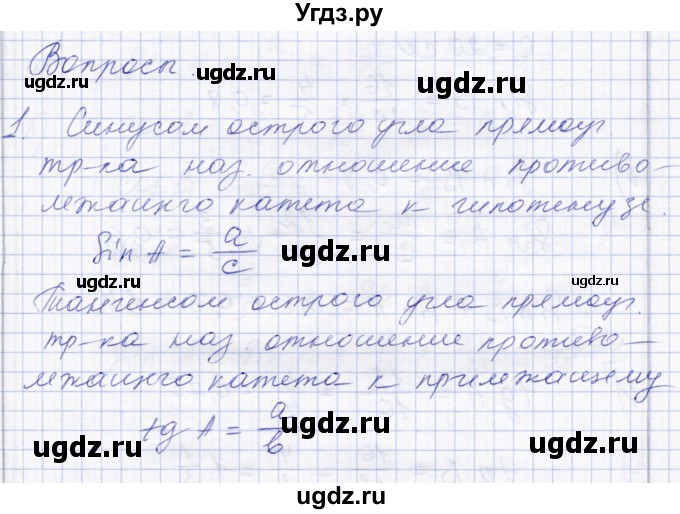 Угдз.ру
Вопросы
1. Синусом острого угла прямоуг.
тр-ка наз. отношение противо-
лежащего катета к гипотенузе.
Sin A = a/c
Тангенсом острого угла прямоуг.
тр-ка наз. отношение противо-
лежащего катета к прилежащему
tg A = a/b
ugdz.ru
ugdz.ru
ugdz.ru
ugdz.ru
ugdz.ru
ugdz.ru
ugdz.ru
ugdz.ru
ugdz.ru
ugdz.ru
ugdz.ru
ugdz.ru
ugdz.ru